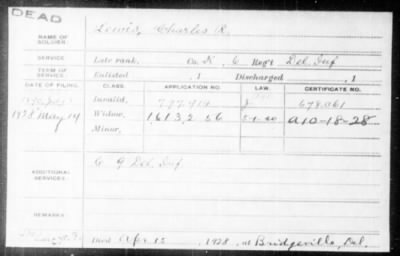 DEAD
NAME OF SOLDIER: Lewis, Charles R.
SERVICE Late rank, Co. K, 6 Reg't Del. Inf
TERM OF SERVICE: Enlisted , 1 Discharged , 1
DATE OF FILING. CLASS. APPLICATION NO. LAW. CERTIFICATE NO.
Invalid, 797.914 J 678.061
1928 May 14 Widow, 1613256 5-1-20 A10-18-28
Minor,
ADDITIONAL SERVICES: C 9 Del. Inf
REMARKS:
Died Apr. 15, 1928, at Bridgeville, Del.